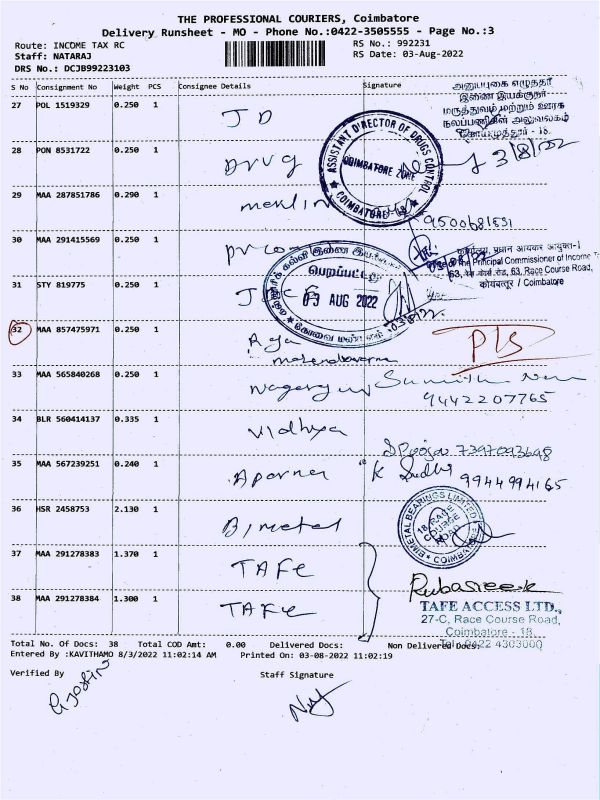 THE PROFESSIONAL COURIERS, Coimbatore
Delivery Runsheet - MO - Phone No.:0422-3505555 - Page No.:3
Route: INCOME TAX RC
RS No.: 992231
Staff: NATARAJ
RS Date: 03-Aug-2022
DRS No.: DCJB99223103
S No Consignment No Weight PCS Consignee Details Signature
27 POL 1519329 0.250 1 J D
அனுப்புகை எழுத்தர்
இணை இயக்குநர்
மருத்துவம் மற்றும் ஊரக
நலப்பணிகள் அலுவலகம்
கோயமுத்தூர் - 18.
28 PON 8531722 0.250 1 Drug
ASSISTANT DIRECTOR OF DRUGS CONTROL
COIMBATORE ZONE
COIMBATORE-18
3/8/22
29 MAA 287851786 0.290 1
30 MAA 291415569 0.250 1
Principal Commissioner of Income
63, Race Course Road,
कोयंबत्तूर / Coimbatore
31 STY 819775 0.250 1
பெறப்பட்டது
03 AUG 2022
32 MAA 857475971 0.250 1
33 MAA 565840268 0.250 1
9442207765
34 BLR 560414137 0.335 1 Vidhya
7397093698
35 MAA 567239251 0.240 1 Aparna
9944994165
36 HSR 2458753 2.130 1 Bimetal
BIMETAL BEARINGS LIMITED
18 RACE COURSE ROAD
COIMBATORE
37 MAA 291278383 1.370 1 TAFE
38 MAA 291278384 1.300 1 TAFE
TAFE ACCESS LTD.,
27-C, Race Course Road,
Coimbatore - 18
Tel: 0422 4303000
Total No. Of Docs: 38 Total COD Amt: 0.00 Delivered Docs: Non Delivered Docs:
Entered By :KAVITHAMO 8/3/2022 11:02:14 AM Printed On: 03-08-2022 11:02:19
Verified By Staff Signature